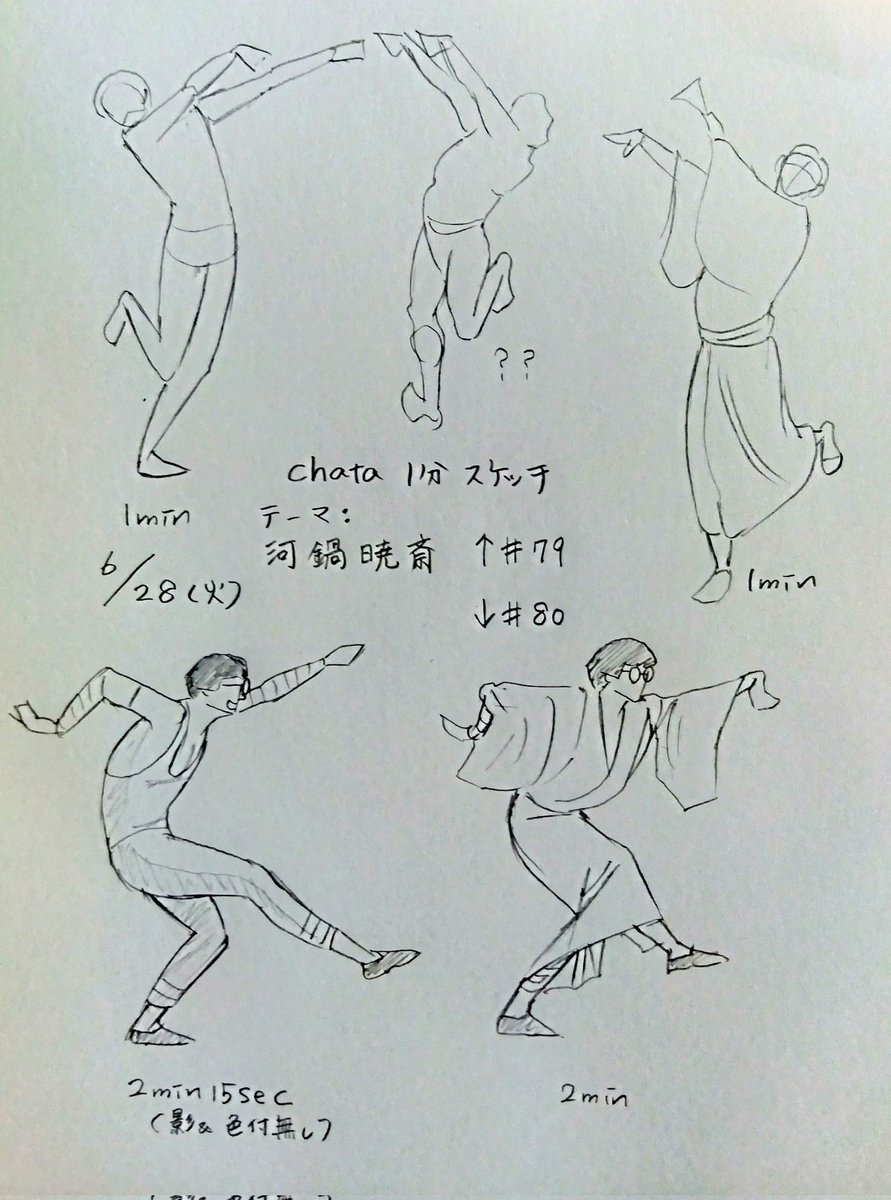 ??
chata 1分スケッチ
1min
テーマ:
河鍋暁斎 ↑#79
6/28(火)
1min
↓#80
2min15sec
(影&色付無し)
2min